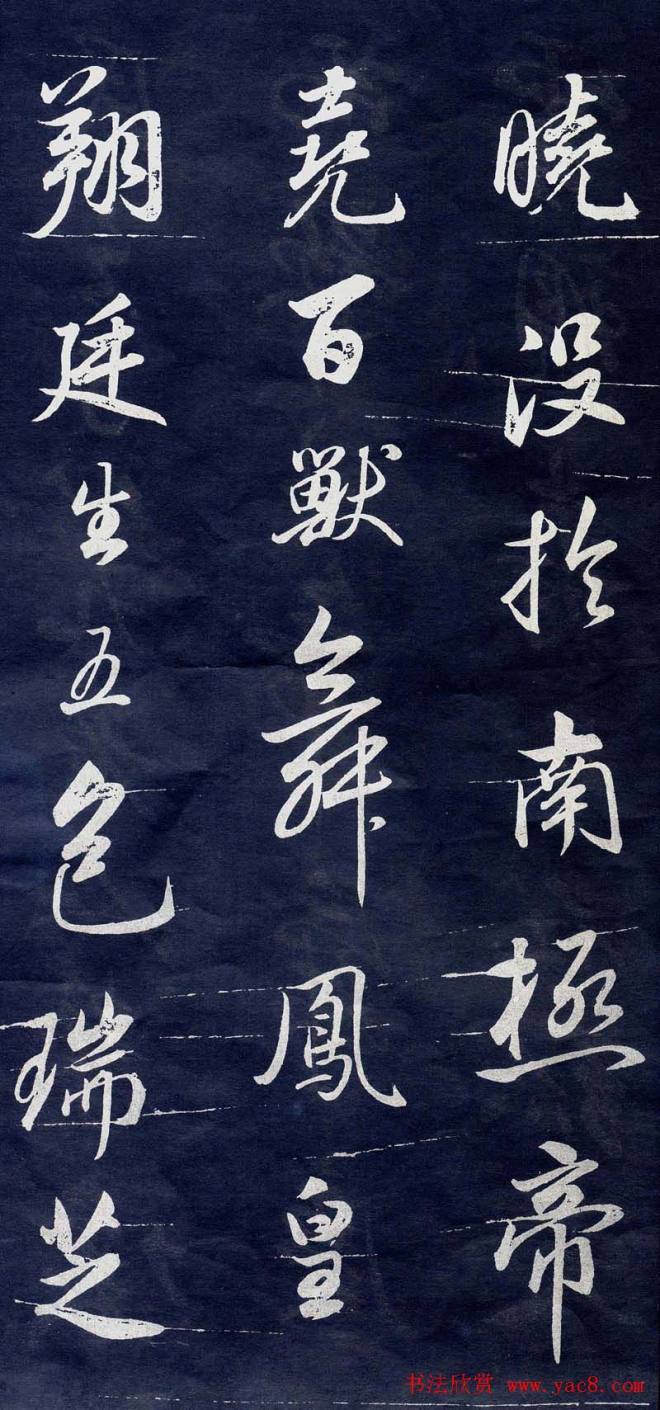 曉没於南極帝
堯百獸舞鳳皇
翔廷生五色瑞芝
书法欣赏 www.yac8.com